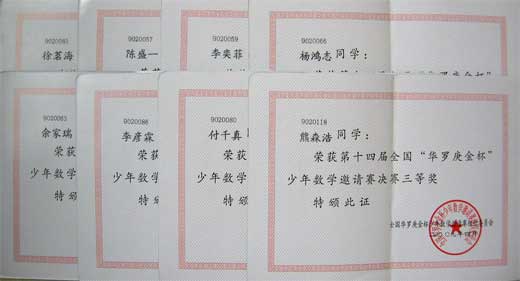 9020061
徐茗海
9020057
陈盛一
9020059
李奕菲
9020066
杨鸿志 同学:
9020063
余家瑞
荣获
少年数学
特颁
9020086
李彦霖
荣获
少年数学
特颁
9020080
付千真
荣获
少年数学
特颁
9020118
熊森浩 同学:
荣获第十四届全国“华罗庚金杯”
少年数学邀请赛决赛三等奖
特颁此证
二〇〇九年四月